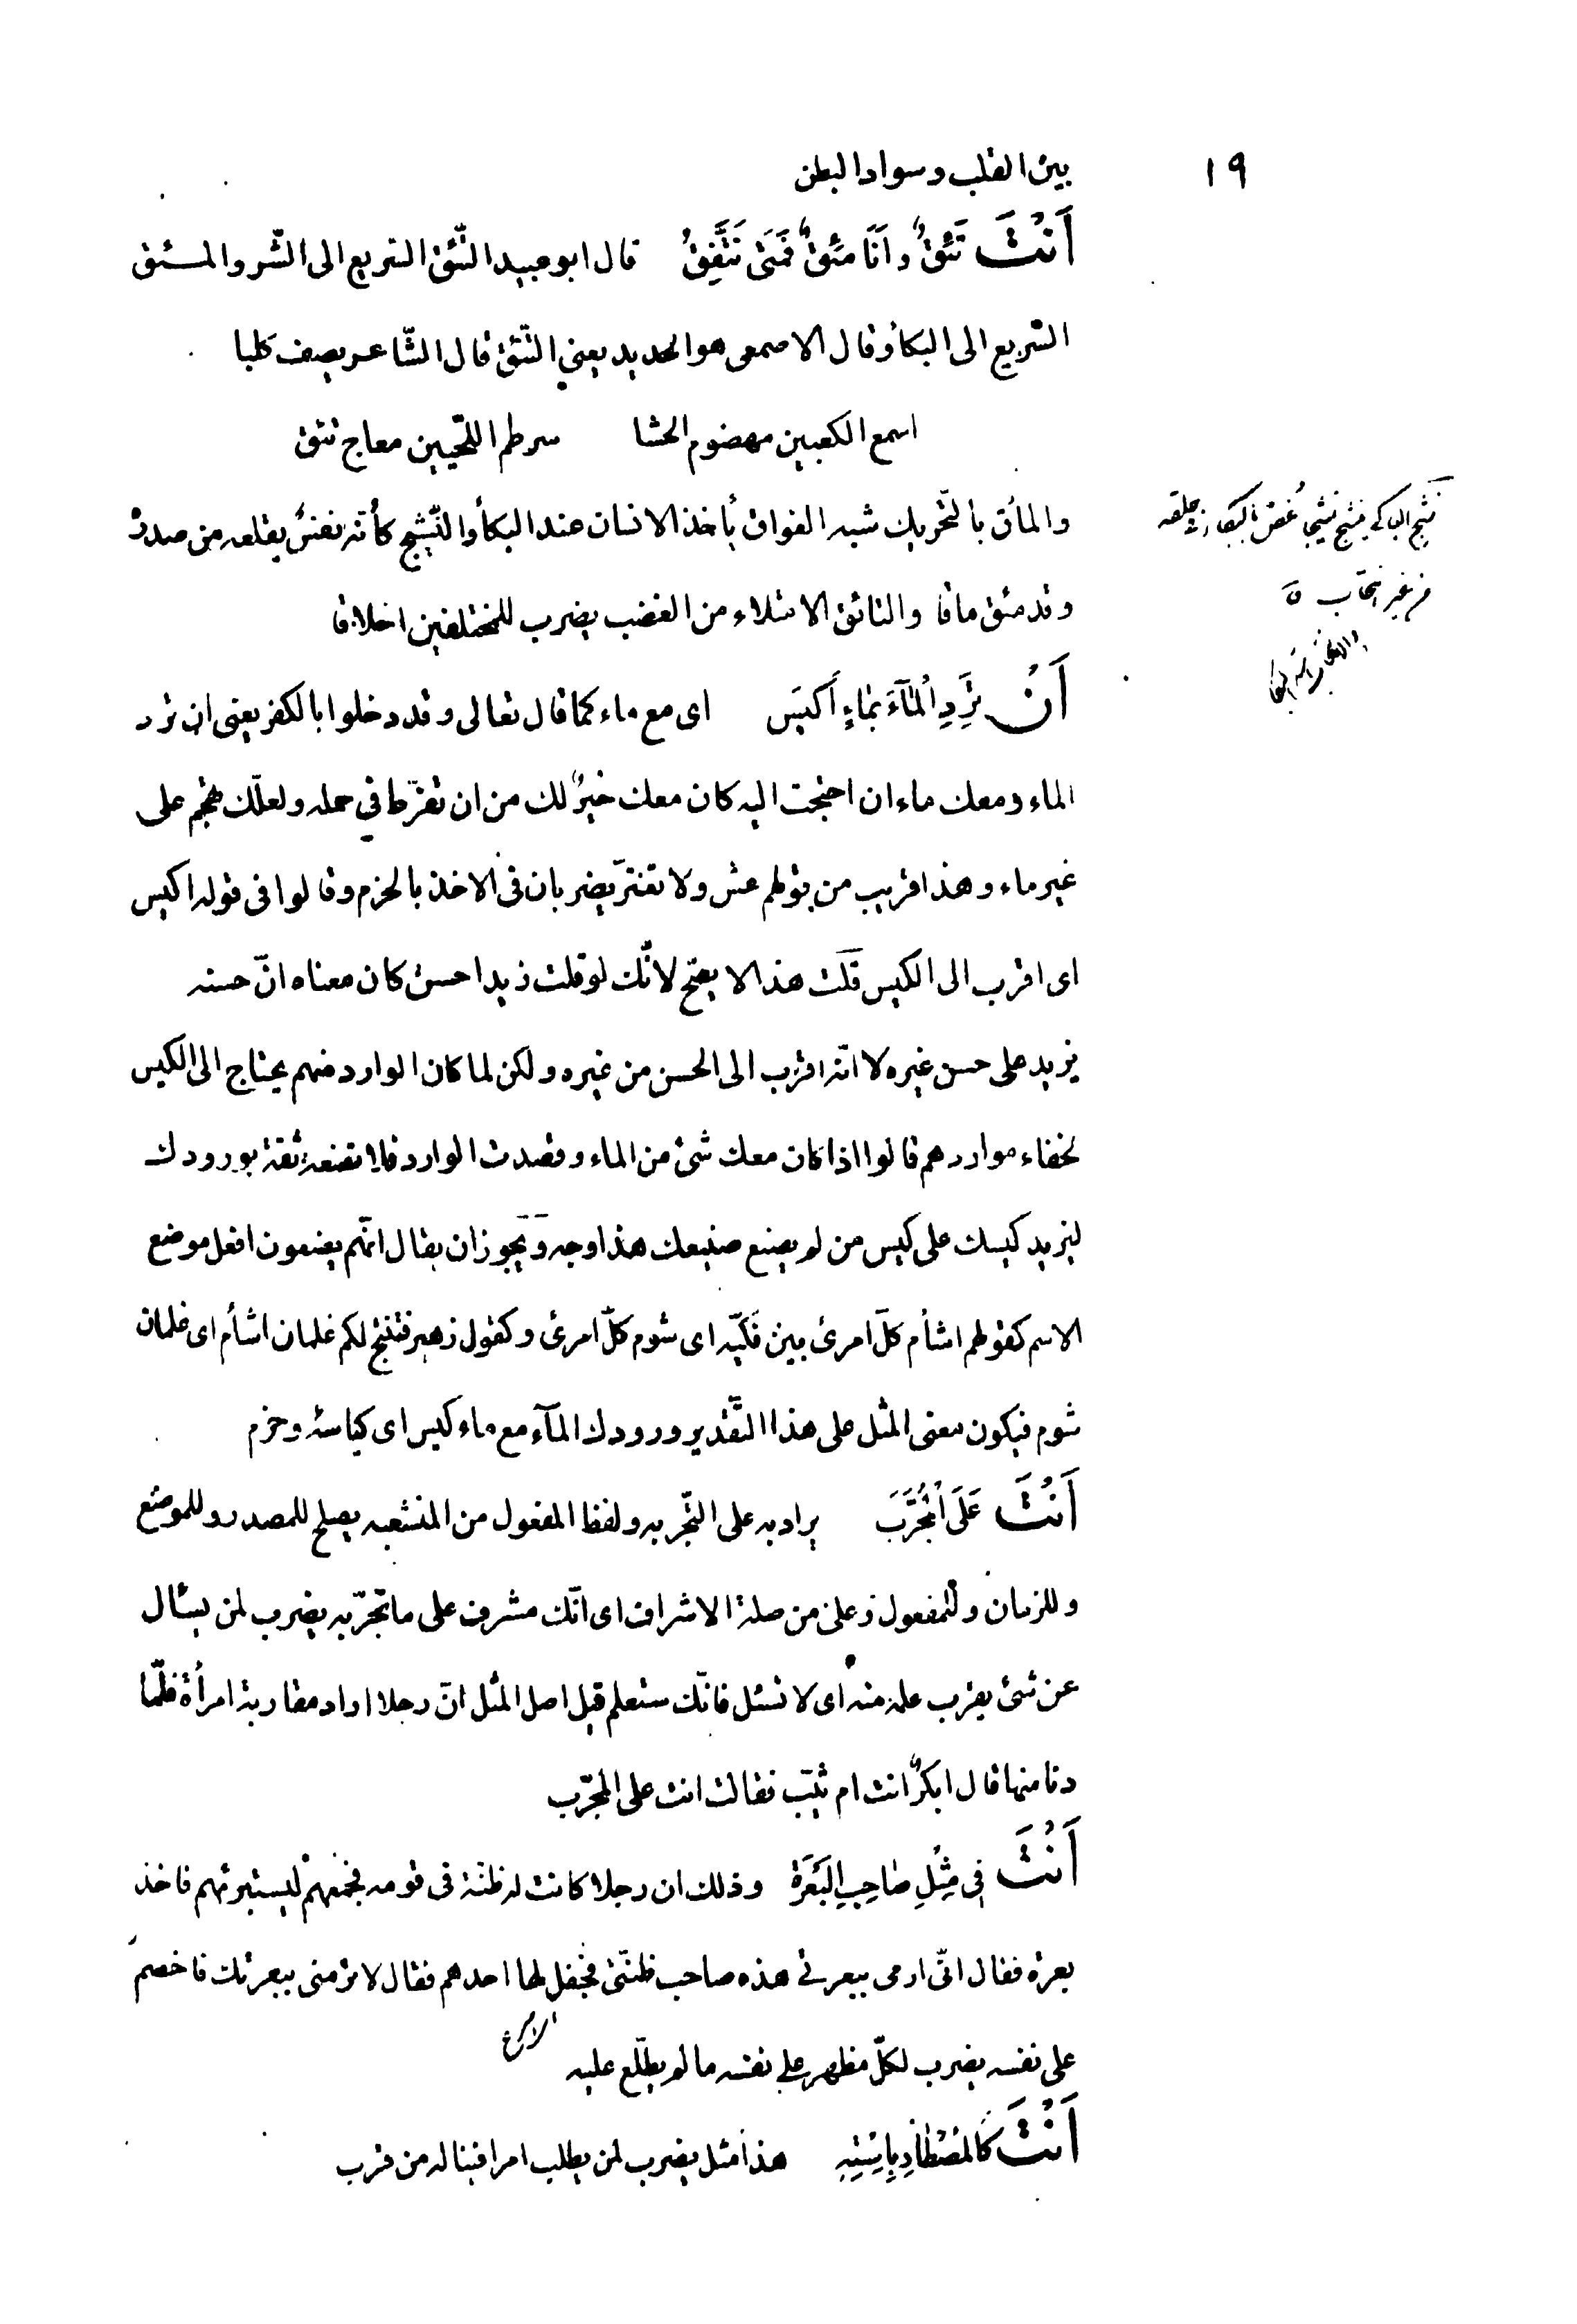 ١٩
بين القلب وسواد البطن
أَنْتَ تَئِقٌ وَاَنَا مَئِقٌ فَمَتَى نَتَّفِقُ قال ابو عبيد التّئق السّريع الى الشّر والمئق
السّريع الى البكأ وقال الاصمعى هو الحديد يعني التّئق قال الشّاعر يصف كلبا
اسمع الكعبين مهضوم الحشا سرطم اللّحيين معاج تئق
والمأق بالتّحريك شبه الفواق يأخذ الانسان عند البكأ والنّشيج كأنّه نفسٌ يقلعه من صدره
وقد مئق ماقا والتائق الامتلاء من الغضب يضرب للمختلفين اخلاقا
أَنْ تَرِدِ اْلمَآءَ بمَاءٍ أَكْيَس اى مع ماء كما قال تعالى وقد دخلوا بالكفر يعنى ان ترد
الماء ومعك ماء ان احتجت اليه كان معك خيرٌ لك من ان تفرّط في حمله ولعلّك تهجم على
غير ماء وهذا قريب من قولهم عش ولا تغترّ يضربان فى الاخذ بالحزم وقالوا فى قوله اكيس
اى اقرب الى الكيس قلت هذا لا يصحّ لانّك لو قلت زيد احسن كان معناه انّ حسنه
يزيد على حسن غيره لا انّه اقرب الى الحسن من غيره ولكن لما كان الوارد منهم يحتاج الى الكيس
لخفاء مواردهم قالوا اذا كان معك شئ من الماء وقصدت الوارد فلا تضعه ثقة بورودك
ليزيد كيسك على كيس من لم يصنع صنيعك هذا وجه ويجوز ان يقال انّهم يضعون افعل موضع
الاسم كقولهم اشأم كلّ امرئ بين فكّيه اى شوم كلّ امرئ وكقول زهير فتنتج لكم غلمان اشأم اى غلمان
شوم فيكون معنى المثل على هذا التّقدير ورودك المآء مع ماء كيس اى كياسة وحزم
أَنْتَ عَلَى اْلمُجَرَّبَ يراد به على التّجربه ولفظ المفعول من المنشعبه يصلح للمصدر وللموضع
وللزمان وللمفعول وعلى من صلة الاشراف اى انّك مشرف على ما تجرّبه يضرب لمن يسئال
عن شئ يقرب علمه منه اى لا تسئل فانّك ستعلم قيل اصل المثل انّ رجلا اراد مقاربة امرأة فلمّا
دنا منها قال ابكرٌ انت ام ثيّب فقالت انت على المجرّب
أَنْتَ فِى مِثْلِ صَاحِبِ الْبَعَرَة وذلك ان رجلا كانت له ظنّة فى قومه فجمعهم ليستبرئهم فاخذ
بعرة فقال انّى ارمى ببعرتى هذه صاحب ظنّتى فجفل لها احدهم فقال لا ترمنى ببعرتك فاخصم
على نفسه يضرب لكلّ مظهر على نفسه ما لم يطّلع عليه
أَنْتَ كَالمُصْطَادِ بِاِسْتِهِ هذا مثل يضرب لمن يطلب امرا فيناله من قرب
نشج الباكى ينشج نشيجا غص بالبكاء فى حلقه
من غير انتحاب